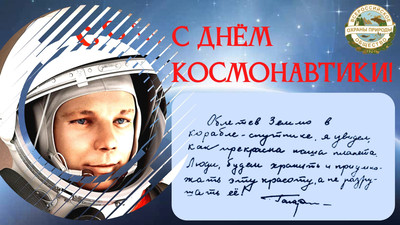 С ДНЁМ
КОСМОНАВТИКИ!
ВСЕРОССИЙСКОЕ
ОХРАНЫ ПРИРОДЫ
ОБЩЕСТВО
Облетев Землю в
корабле-спутнике, я увидел,
как прекрасна наша планета.
Люди, будем хранить и приумно-
жать эту красоту, а не разру-
шать её!